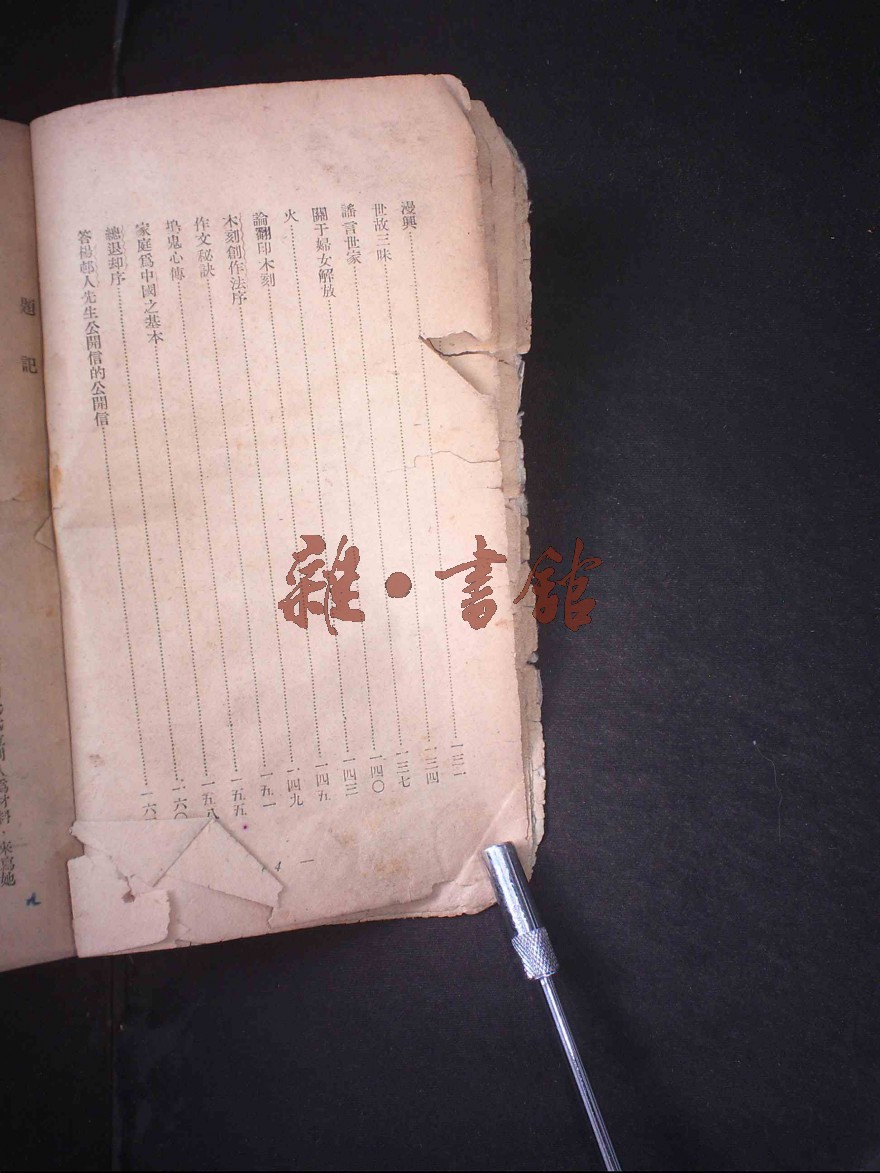 漫興……一三一
世故三昧……一三四
謠言世家……一三七
關于婦女解放……一四〇
火……一四三
論翻印木刻……一四五
木刻創作法序……一四九
作文秘訣……一五一
搗鬼心傳……一五五
家庭爲中國之基本……一五八
總退却序……一六〇
答楊邨人先生公開信的公開信……一六
4 —
題記
爲材料，來寫她
雜·書館